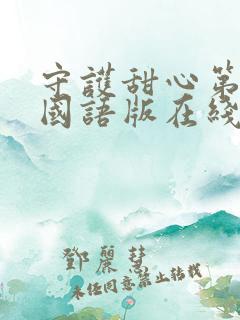 守護甜心第
國語版在綫
鄧麗慧
未任同意禁止转载